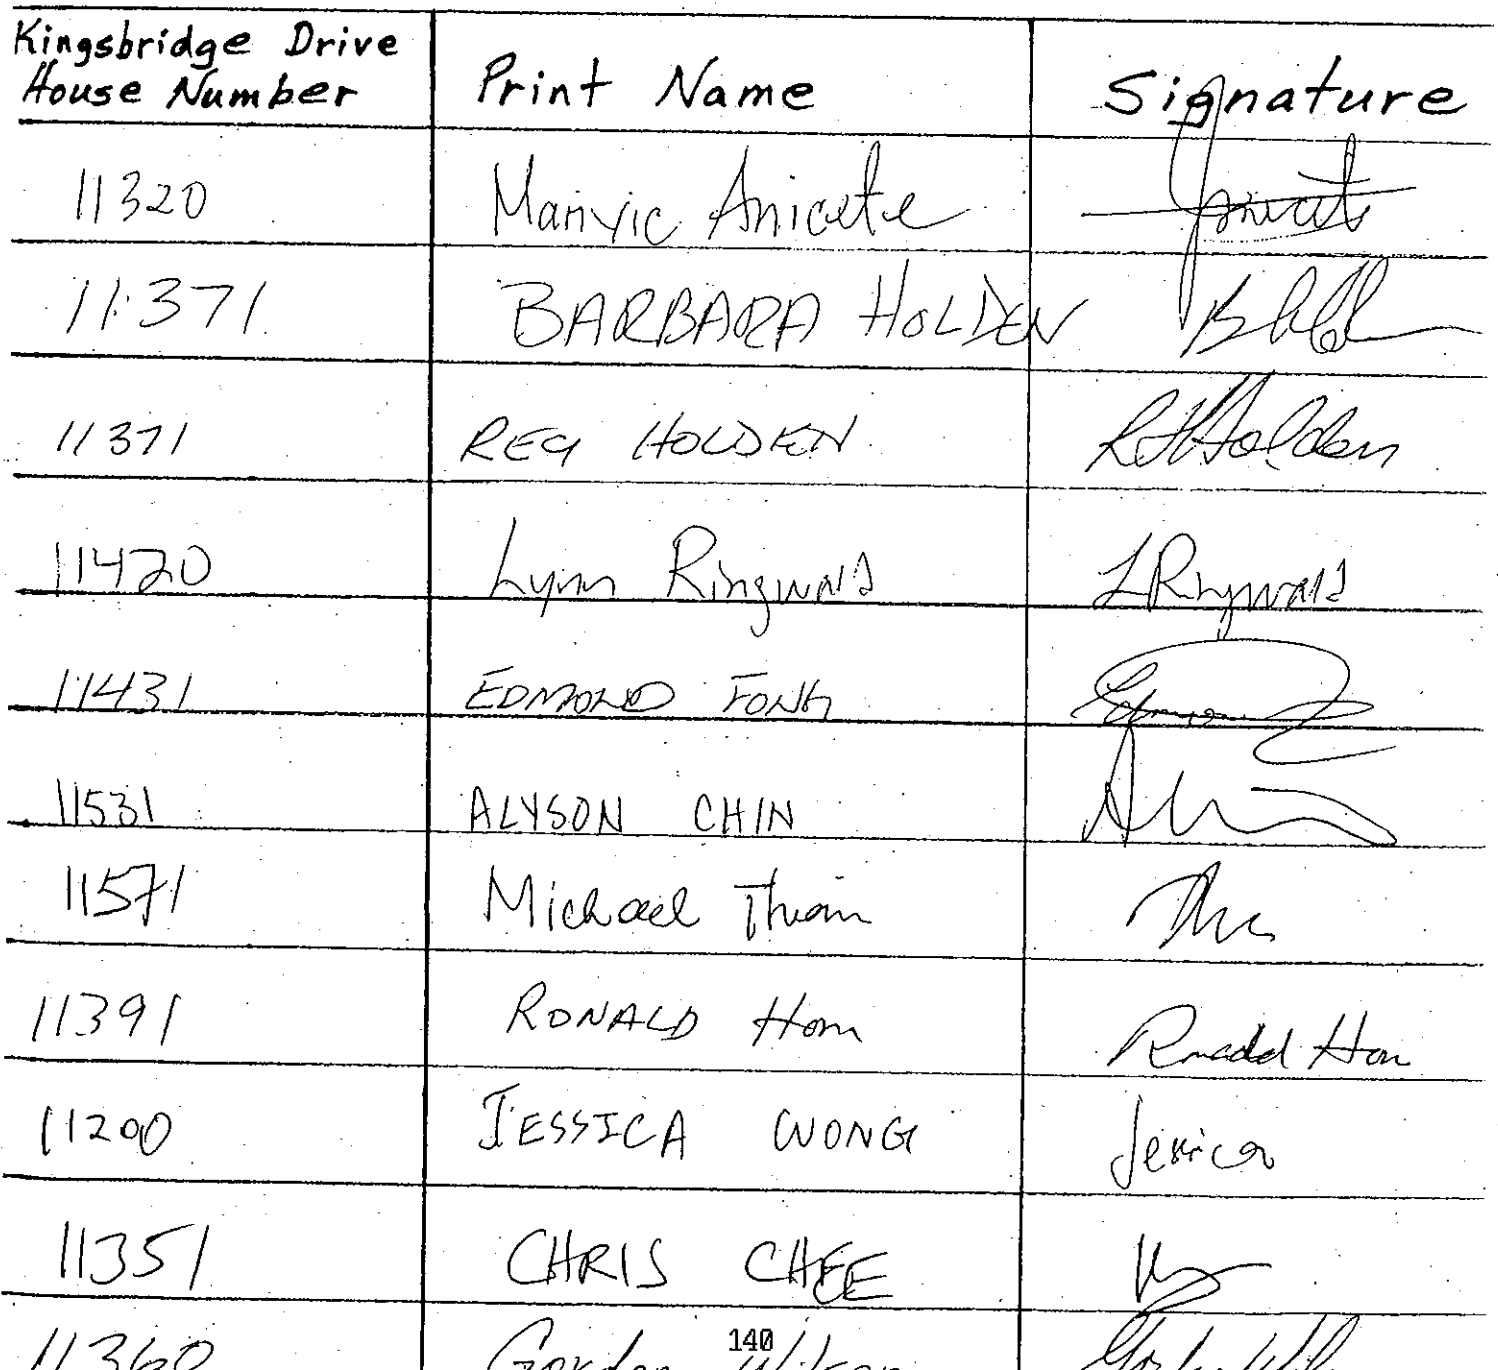 Kingsbridge Drive
House Number Print Name Signature
11320 Marivic Anicete
11371 BARBARA HOLDEN
11371 REG HOLDEN RHHolden
11420 Lynn Ringwald LRingwald
11431 EDMOND FONG
11531 ALYSON CHIN
11571 Michael Thiam
11391 RONALD Hom Ronald Hom
11200 JESSICA WONG Jessica
11351 CHRIS CHEE
11360 Gordon Wilson
140